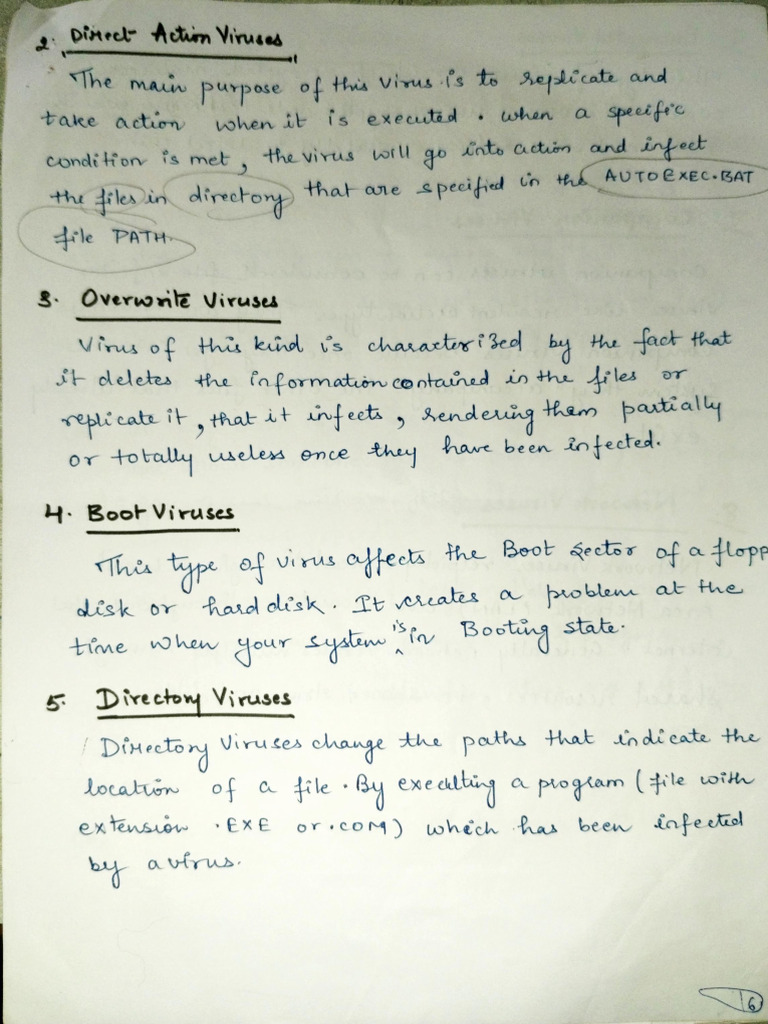 2. Direct Action Viruses
The main purpose of this virus is to replicate and
take action when it is executed. when a specific
condition is met, the virus will go into action and infect
the files in directory that are specified in the AUTOEXEC.BAT
file PATH.
3. Overwrite Viruses
Virus of this kind is characterized by the fact that
it deletes the information contained in the files or
replicate it, that it infects, rendering them partially
or totally useless once they have been infected.
4. Boot Viruses
This type of virus affects the Boot Sector of a flopp
disk or hard disk. It creates a problem at the
time when your system is in Booting state.
5. Directory Viruses
Directory Viruses change the paths that indicate the
location of a file. By executing a program (file with
extension .EXE or .COM) which has been infected
by a virus.
6